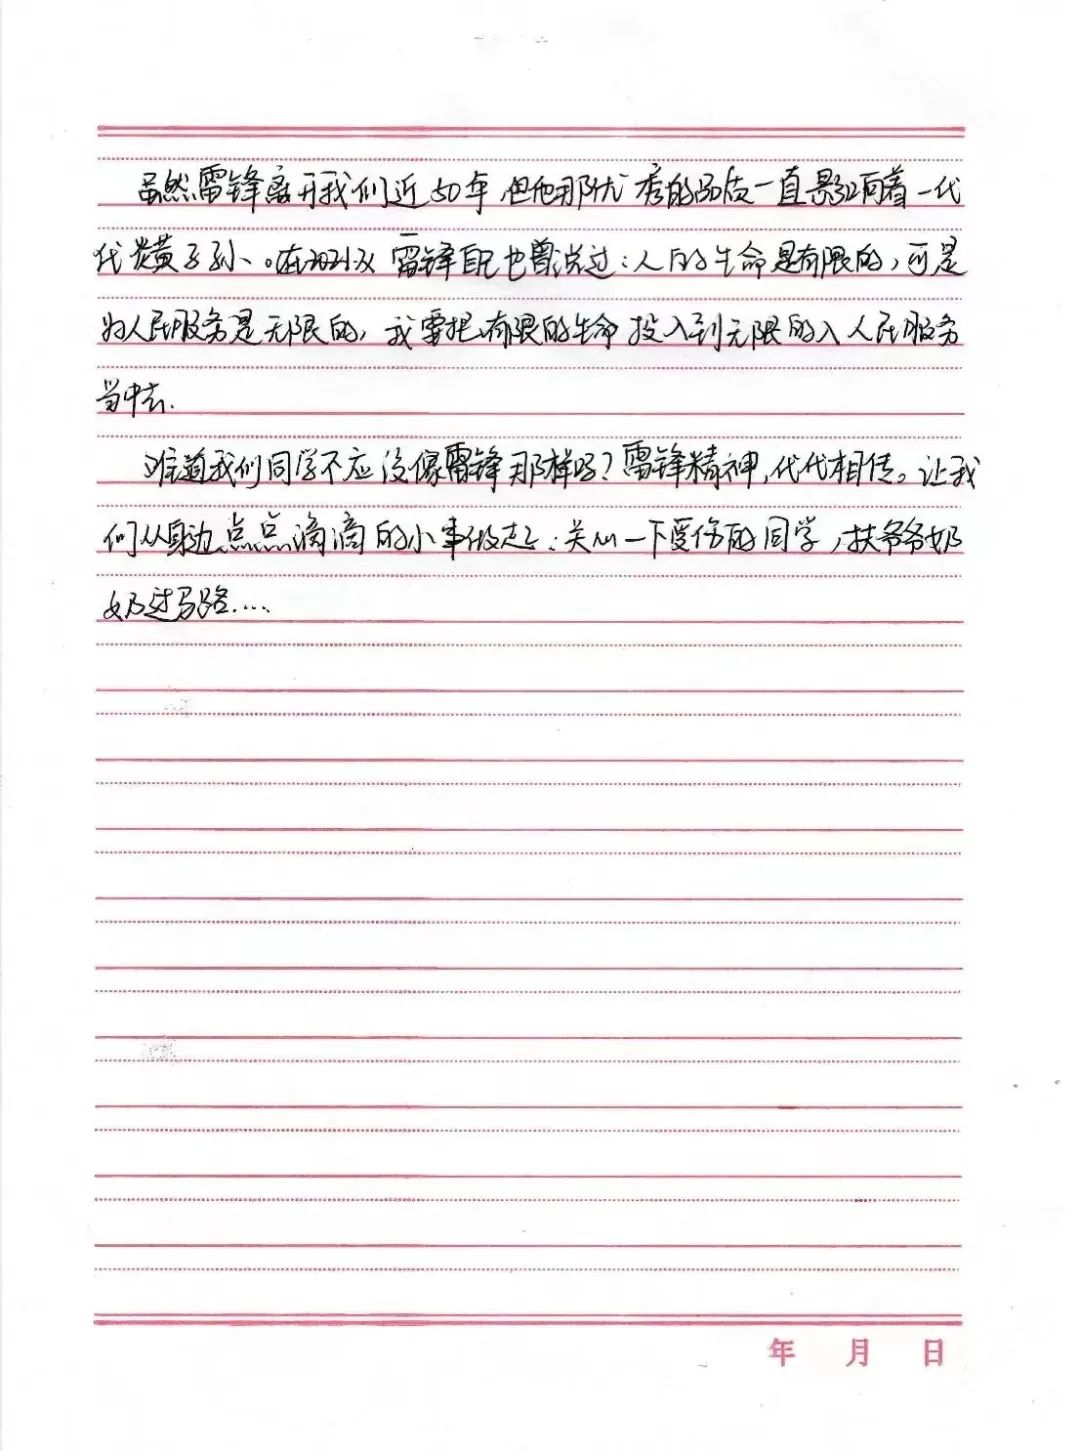 虽然雷锋离开我们近50年,但他那优秀的品质一直影响着一代
代炎黄子孙。雷锋自己也曾说过:人的生命是有限的,可是
为人民服务是无限的,我要把有限的生命投入到无限的入人民服务
当中去.
难道我们同学不应没像雷锋那样吗?雷锋精神,代代相传。让我
们从身边点点滴滴的小事做起:关心一下受伤的同学,扶爷爷奶
奶过马路....
年 月 日